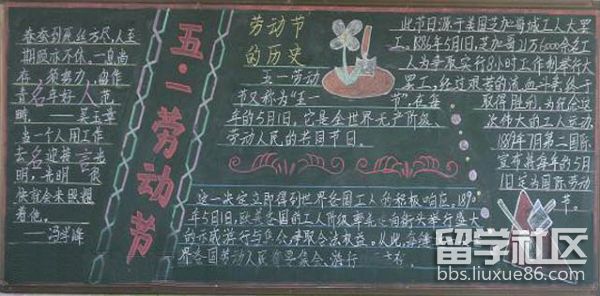 春蚕到死丝方尽,人至
期颐亦不休。一息尚
存,须努力,留作
青年好范
畴。——吴玉章
当一个人用工作
去迎接
明,光明
快就会来照耀
着他。
——冯学峰
五·一劳动节
劳动节
的历史
五一劳动
节又称为"五一
节",在每
年的5月1日。它是全世界无产阶级、
劳动人民的共同节日。
此节日源于美国芝加哥城工人大罢
工,1886年5月1日,芝加哥21万6000余名工
人为争取实行8小时工作制举行大
罢工,经过艰苦的流血斗争,终于
取得胜利。为纪念这
次伟大的工人运动,
1889年7月第二国际
宣布将每年的5月
1日定为国际劳动
节。
这一决定立即得到世界各国工人的积极响应。1890
年5月1日,欧美各国的工人阶级率先走向街头,举行盛大
的示威游行与集会,争取合法权益。从此,每逢
界各国劳动人民都要集会、游行
留学社区
bbs.liuxue86.com